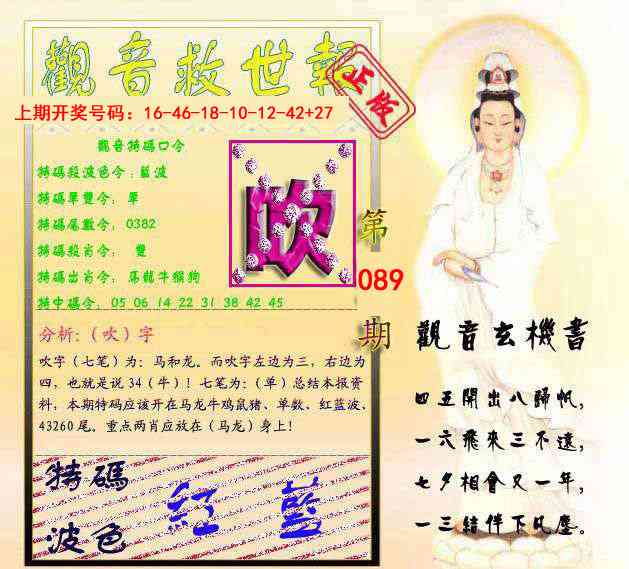 觀音救世報
正版
上期开奖号码：16-46-18-10-12-42+27
觀音特碼口令
特碼段波色令:藍波
特碼單雙令： 單
特碼尾數令： 0382
特碼段肖令： 雙
特碼出肖令： 馬龍牛猴狗
特中碼令： 05 06 14 22 31 38 42 45
吹
第
089
期
分析:（吹）字
吹字（七笔）为：马和龙。而吹字左边为三，右边为
四，也就是说 34（牛）！七笔为:（单）总结本报资
料，本期特码应该开在马龙牛鸡鼠猪、单数、红蓝波、
43260 尾。重点两肖应放在（马龙）身上！
特碼
波色
紅 藍
觀音玄機書
四五開出八歸帆，
一六飛來三不遠，
七夕相會又一年，
一三結伴下凡塵。